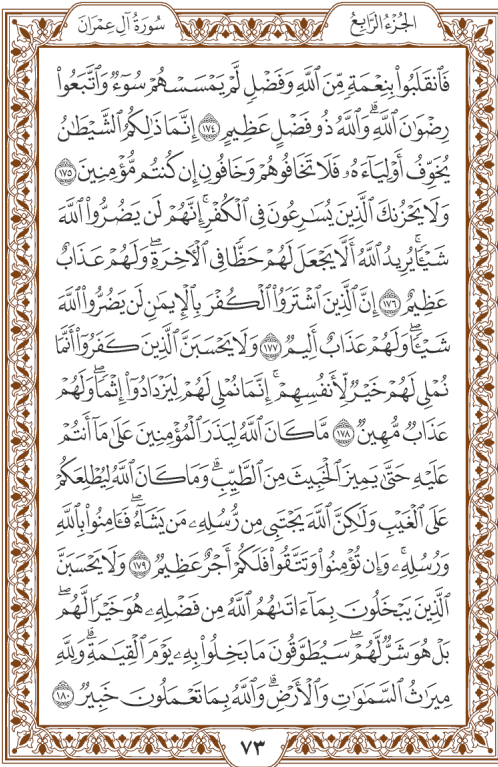 الجُزْءُ الرَّابِعُ
سُورَةُ آلِ عِمْرَانَ
فَٱنقَلَبُوا۟ بِنِعْمَةٍ مِّنَ ٱللَّهِ وَفَضْلٍ لَّمْ يَمْسَسْهُمْ سُوٓءٌ وَٱتَّبَعُوا۟
رِضْوَٰنَ ٱللَّهِ ۗ وَٱللَّهُ ذُو فَضْلٍ عَظِيمٍ ١٧٤ إِنَّمَا ذَٰلِكُمُ ٱلشَّيْطَٰنُ
يُخَوِّفُ أَوْلِيَآءَهُۥ فَلَا تَخَافُوهُمْ وَخَافُونِ إِن كُنتُم مُّؤْمِنِينَ ١٧٥
وَلَا يَحْزُنكَ ٱلَّذِينَ يُسَٰرِعُونَ فِى ٱلْكُفْرِ ۚ إِنَّهُمْ لَن يَضُرُّوا۟ ٱللَّهَ
شَيْـًٔا ۗ يُرِيدُ ٱللَّهُ أَلَّا يَجْعَلَ لَهُمْ حَظًّا فِى ٱلْءَاخِرَةِ ۖ وَلَهُمْ عَذَابٌ
عَظِيمٌ ١٧٦ إِنَّ ٱلَّذِينَ ٱشْتَرَوُا۟ ٱلْكُفْرَ بِٱلْإِيمَٰنِ لَن يَضُرُّوا۟ ٱللَّهَ
شَيْـًٔا ۖ وَلَهُمْ عَذَابٌ أَلِيمٌ ١٧٧ وَلَا يَحْسَبَنَّ ٱلَّذِينَ كَفَرُوٓا۟ أَنَّمَا
نُمْلِى لَهُمْ خَيْرٌ لِّأَنفُسِهِمْ ۚ إِنَّمَا نُمْلِى لَهُمْ لِيَزْدَادُوٓا۟ إِثْمًا ۚ وَلَهُمْ
عَذَابٌ مُّهِينٌ ١٧٨ مَّا كَانَ ٱللَّهُ لِيَذَرَ ٱلْمُؤْمِنِينَ عَلَىٰ مَآ أَنتُمْ
عَلَيْهِ حَتَّىٰ يَمِيزَ ٱلْخَبِيثَ مِنَ ٱلطَّيِّبِ ۗ وَمَا كَانَ ٱللَّهُ لِيُطْلِعَكُمْ
عَلَى ٱلْغَيْبِ وَلَٰكِنَّ ٱللَّهَ يَجْتَبِى مِن رُّسُلِهِۦ مَن يَشَآءُ ۖ فَـَٔامِنُوا۟ بِٱللَّهِ
وَرُسُلِهِۦ ۚ وَإِن تُؤْمِنُوا۟ وَتَتَّقُوا۟ فَلَكُمْ أَجْرٌ عَظِيمٌ ١٧٩ وَلَا يَحْسَبَنَّ
ٱلَّذِينَ يَبْخَلُونَ بِمَآ ءَاتَىٰهُمُ ٱللَّهُ مِن فَضْلِهِۦ هُوَ خَيْرًا لَّهُم ۖ
بَلْ هُوَ شَرٌّ لَّهُمْ ۖ سَيُطَوَّقُونَ مَا بَخِلُوا۟ بِهِۦ يَوْمَ ٱلْقِيَٰمَةِ ۗ وَلِلَّهِ
مِيرَٰثُ ٱلسَّمَٰوَٰتِ وَٱلْأَرْضِ ۗ وَٱللَّهُ بِمَا تَعْمَلُونَ خَبِيرٌ ١٨٠
٧٣